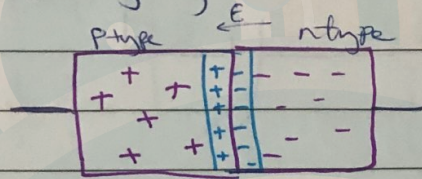 E
p-type n-type
+ + - - -
+ + + - - -
+ + - -
+ + - -
+ + + - -
+ - -